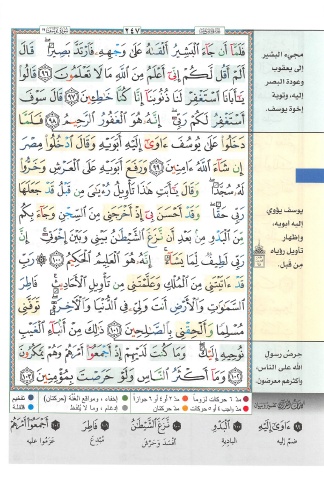 ٢٤٧
فَلَمَّآ أَن جَآءَ ٱلْبَشِيرُ أَلْقَىٰهُ عَلَىٰ وَجْهِهِۦ فَٱرْتَدَّ بَصِيرًا ۖ قَالَ
أَلَمْ أَقُل لَّكُمْ إِنِّىٓ أَعْلَمُ مِنَ ٱللَّهِ مَا لَا تَعْلَمُونَ ٩٦ قَالُوا۟
يَـٰٓأَبَانَا ٱسْتَغْفِرْ لَنَا ذُنُوبَنَآ إِنَّا كُنَّا خَـٰطِـِٔينَ ٩٧ قَالَ سَوْفَ
أَسْتَغْفِرُ لَكُمْ رَبِّىٓ ۖ إِنَّهُۥ هُوَ ٱلْغَفُورُ ٱلرَّحِيمُ ٩٨ فَلَمَّا
دَخَلُوا۟ عَلَىٰ يُوسُفَ ءَاوَىٰٓ إِلَيْهِ أَبَوَيْهِ وَقَالَ ٱدْخُلُوا۟ مِصْرَ
إِن شَآءَ ٱللَّهُ ءَامِنِينَ ٩٩ وَرَفَعَ أَبَوَيْهِ عَلَى ٱلْعَرْشِ وَخَرُّوا۟
لَهُۥ سُجَّدًا ۖ وَقَالَ يَـٰٓأَبَتِ هَـٰذَا تَأْوِيلُ رُءْيَـٰىَ مِن قَبْلُ قَدْ جَعَلَهَا
رَبِّى حَقًّا ۖ وَقَدْ أَحْسَنَ بِىٓ إِذْ أَخْرَجَنِى مِنَ ٱلسِّجْنِ وَجَآءَ بِكُم
مِّنَ ٱلْبَدْوِ مِنۢ بَعْدِ أَن نَّزَغَ ٱلشَّيْطَـٰنُ بَيْنِى وَبَيْنَ إِخْوَتِىٓ ۚ إِنَّ
رَبِّى لَطِيفٌ لِّمَا يَشَآءُ ۚ إِنَّهُۥ هُوَ ٱلْعَلِيمُ ٱلْحَكِيمُ ١٠٠ رَبِّ
قَدْ ءَاتَيْتَنِى مِنَ ٱلْمُلْكِ وَعَلَّمْتَنِى مِن تَأْوِيلِ ٱلْأَحَادِيثِ ۚ فَاطِرَ
ٱلسَّمَـٰوَٰتِ وَٱلْأَرْضِ أَنتَ وَلِىِّۦ فِى ٱلدُّنْيَا وَٱلْـَٔاخِرَةِ ۖ تَوَفَّنِى
مُسْلِمًا وَأَلْحِقْنِى بِٱلصَّـٰلِحِينَ ١٠١ ذَٰلِكَ مِنْ أَنۢبَآءِ ٱلْغَيْبِ
نُوحِيهِ إِلَيْكَ ۖ وَمَا كُنتَ لَدَيْهِمْ إِذْ أَجْمَعُوٓا۟ أَمْرَهُمْ وَهُمْ يَمْكُرُونَ
١٠٢ وَمَآ أَكْثَرُ ٱلنَّاسِ وَلَوْ حَرَصْتَ بِمُؤْمِنِينَ ١٠٣
مجيء البشير
إلى يعقوب
وعودة البصر
إليه، وتوبة
إخوة يوسف.
يوسف يؤوي
إليه أبويه،
وإظهار
تأويل رؤياه
من قبل.
حرص رسول
الله على الناس،
وأكثرهم معرضون.
مدّ ٦ حركات لزوماً
مدّ ٢ أو ٤ أو ٦ جوازاً
إخفاء، ومواقع الغُنَّة (حركتان)
تفخيم
مدّ واجب ٤ أو ٥ حركات
مدّ حركتان
إدغام، وما لا يُلفظ
قلقلة
ءَاوَىٰٓ إِلَيْهِ
ضمّ إليه
ٱلْبَدْوِ
البادية
نَّزَغَ ٱلشَّيْطَـٰنُ
أفسد وحرّش
فَاطِرَ
مُبْدِع
أَجْمَعُوٓا۟ أَمْرَهُمْ
عزموا عليه